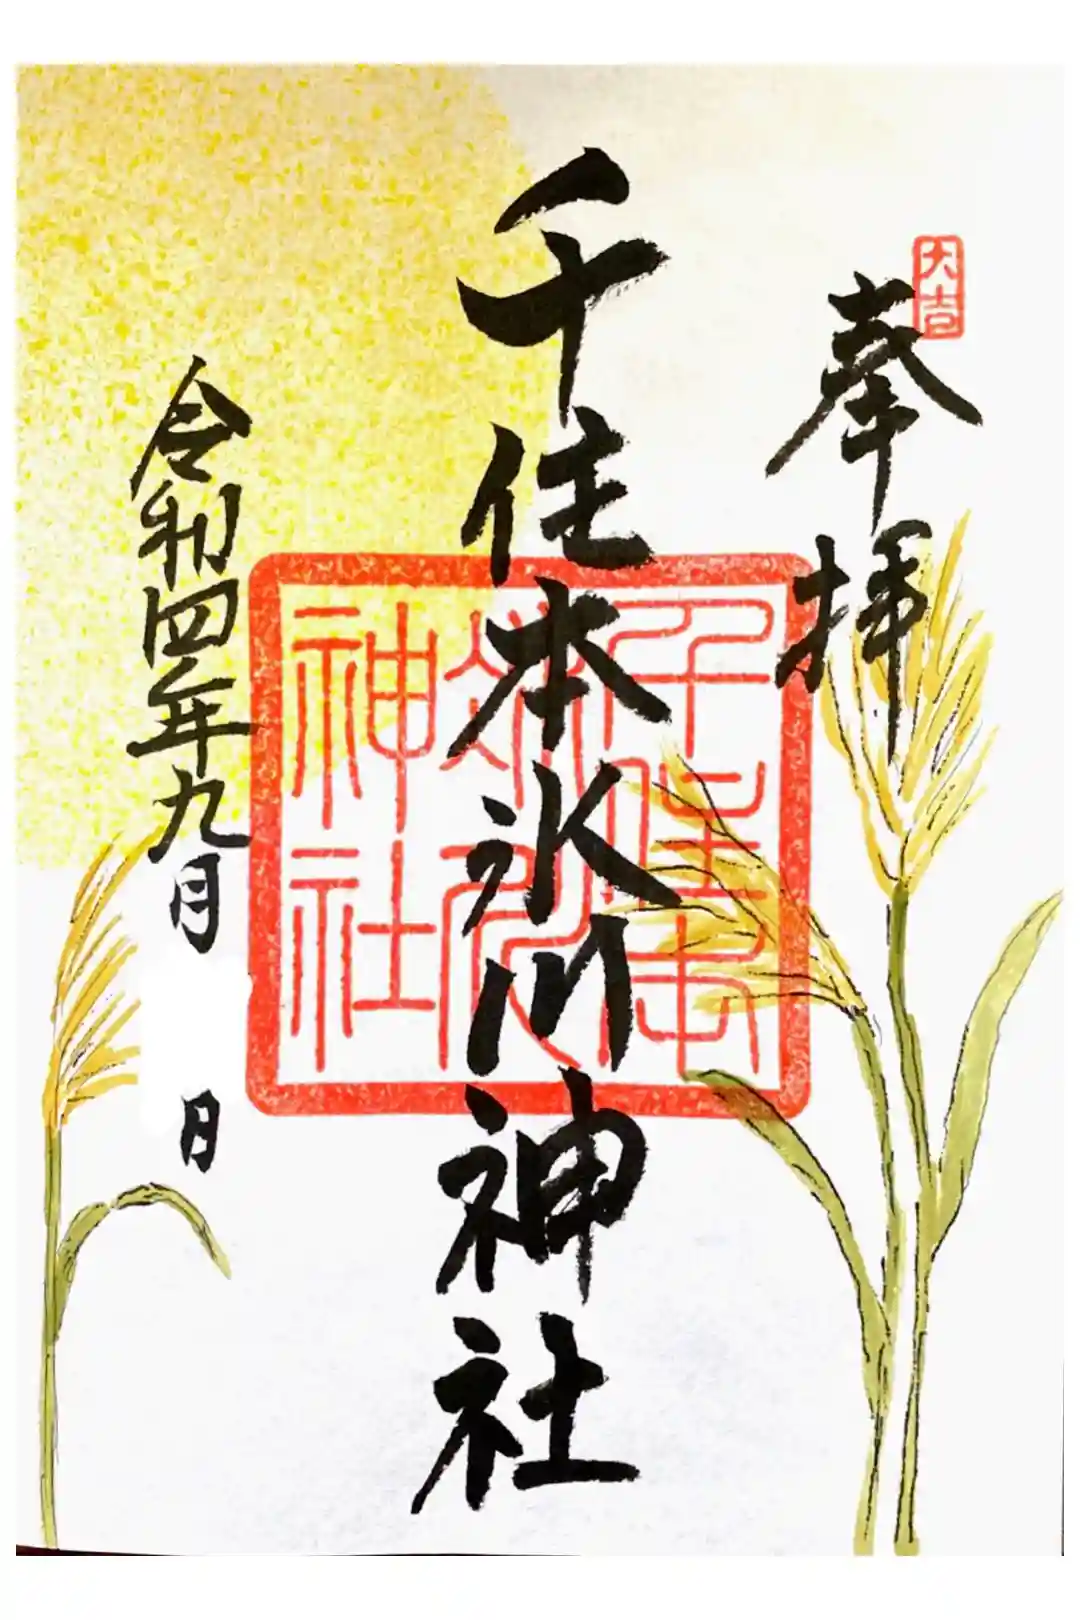 大吉
奉拝
千住本氷川神社
千住本
氷川
神社
令和四年九月 日